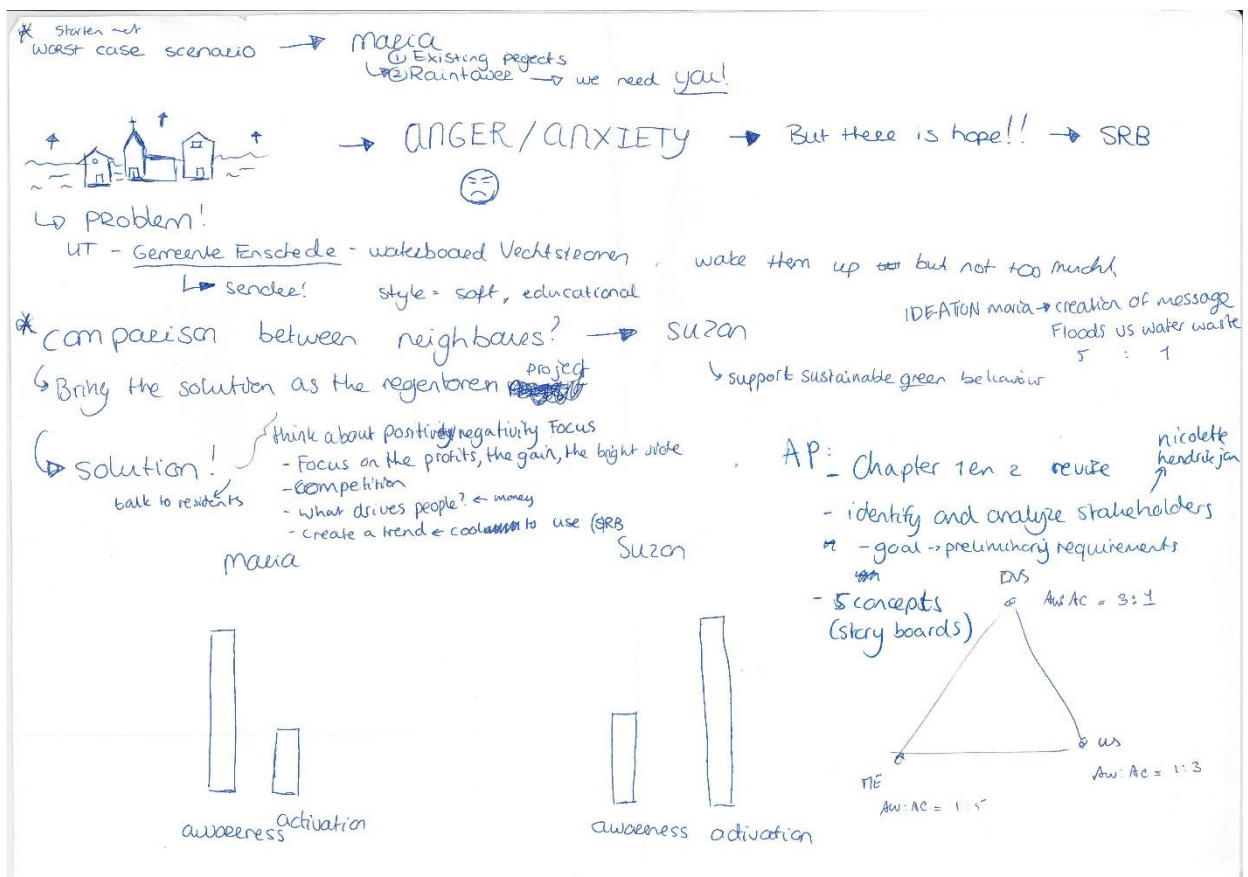 * Starten met
worst case scenario → Maria
① Existing pegects
↳ ② Raintower → we need you!
→ ANGER / ANXIETY → But there is hope!! → SRB
↳ problem!
UT - Gemeente Enschede - waterboard Vechtstromen, wake them up but not too much!
↳ sender! style = soft, educational
IDEATION maria → creation of message
Floods vs water waste
5 : 1
* comparison between neighbours? → suzan
↳ support sustainable green behaviour
↳ Bring the solution as the regentoren project
↳ solution!
talk to residents
think about positivity/negativity Focus
- Focus on the profits, the gain, the bright side
- competition
- what drives people? ← money
- create a trend ← cool to use (SRB
AP:
- Chapter 1 en 2 revise
nicolette
hendrikjan
- identify and analyze stakeholders
- goal → preliminary requirements
- 5 concepts
(story boards)
Maria
awareness
activation
Suzan
awareness activation
Aw:AC = 3:1
US
Aw:Ac = 1:3
ME
Aw:AC = 1:5